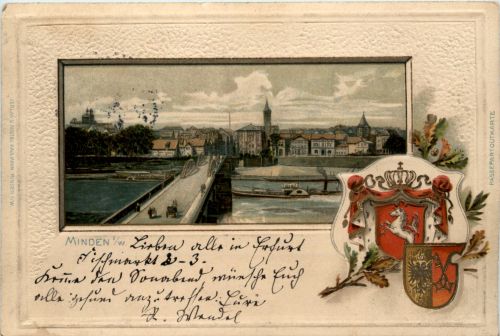 MINDEN i/W
Lieben alle in Erfurt
Fischmarkt 2-3.
Komme den Sonnabend wünsche Euch
alle gesund anzutreffen. Eure
R. Wendel
PASSEPARTOUTKARTE